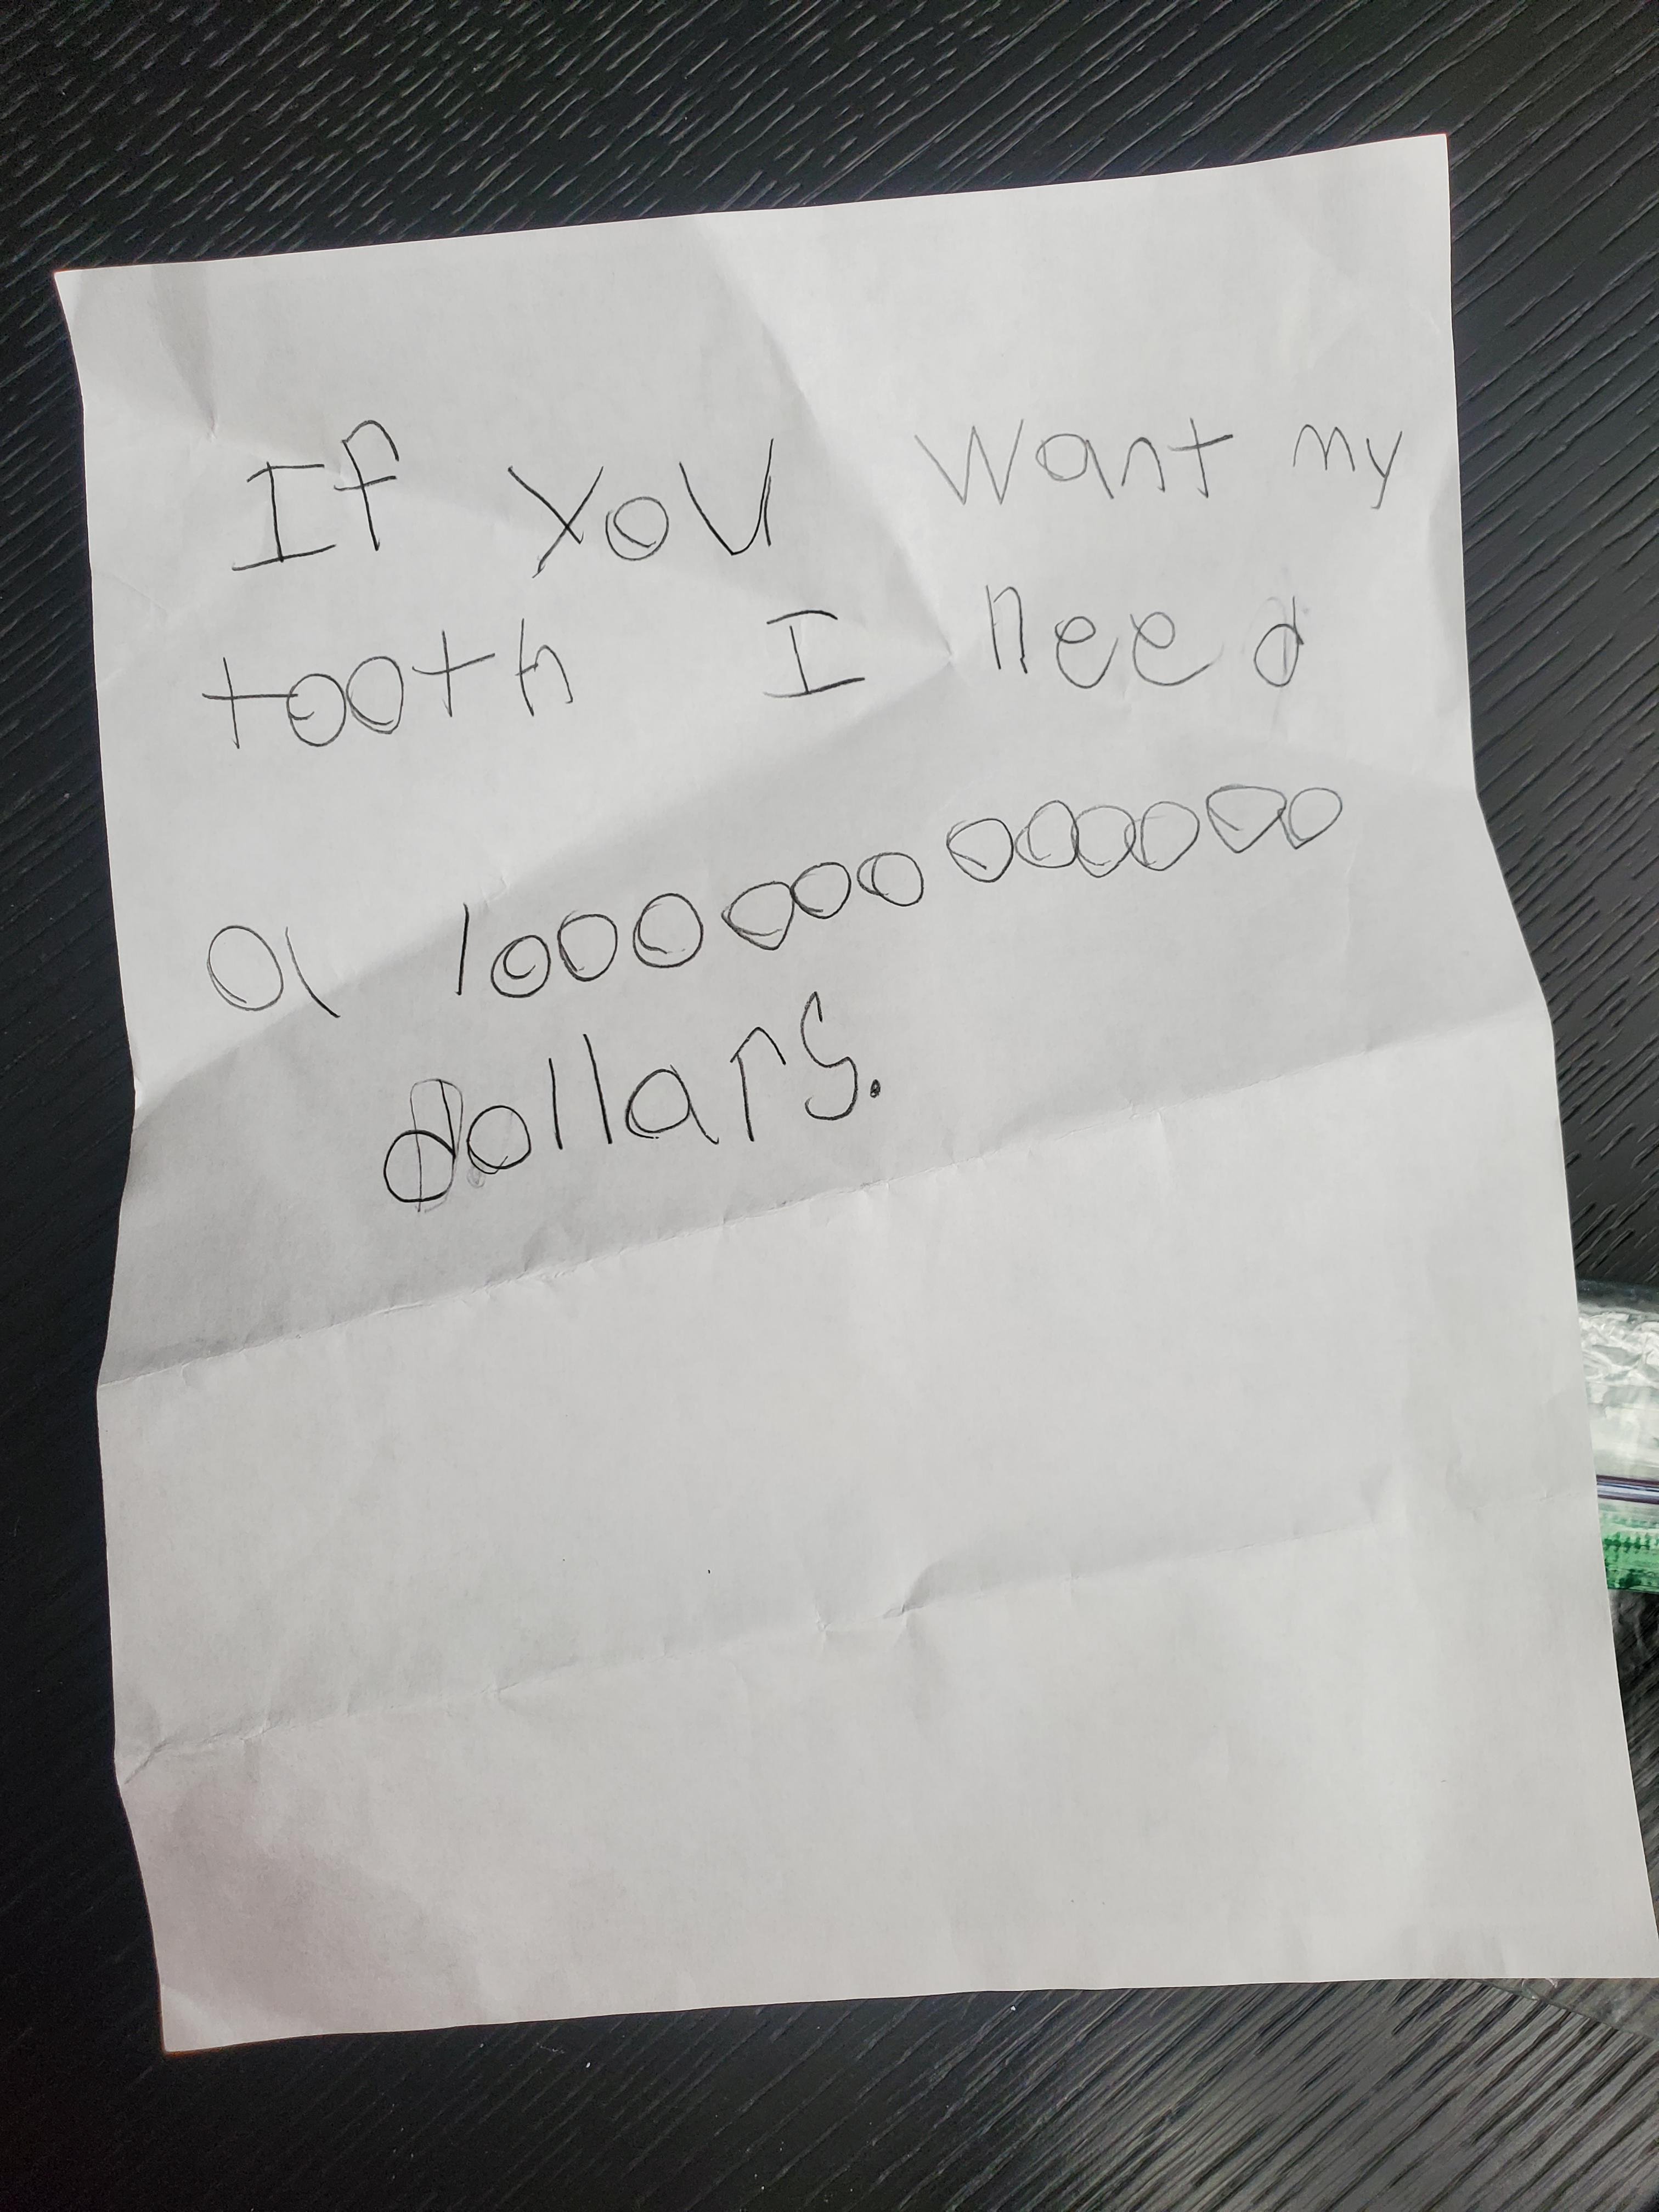 If you want my
tooth I need
a 1000000000000
dollars.